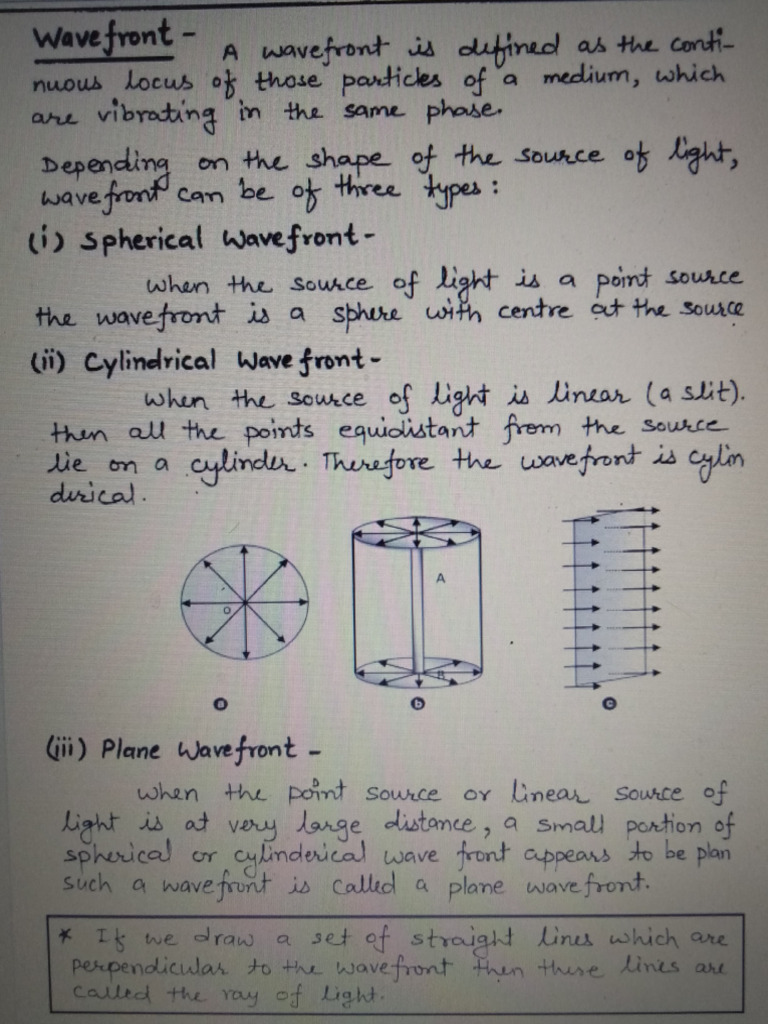 Wavefront - A wavefront is defined as the conti-
nuous locus of those particles of a medium, which
are vibrating in the same phase.
Depending on the shape of the source of light,
wavefront can be of three types :
(i) Spherical Wavefront -
When the source of light is a point source
the wavefront is a sphere with centre at the source
(ii) Cylindrical Wavefront -
When the source of light is linear (a slit).
then all the points equidistant from the source
lie on a cylinder. Therefore the wavefront is cylin
derical.
O
A
B
a b c
(iii) Plane Wavefront -
When the point source or linear source of
light is at very large distance, a small portion of
spherical or cylinderical wave front appears to be plan
such a wavefront is called a plane wavefront.
* If we draw a set of straight lines which are
perpendicular to the wavefront then these lines are
called the ray of light.